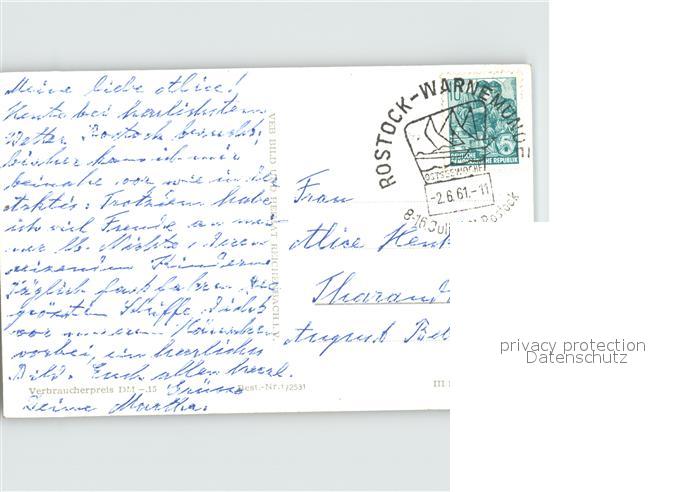 Meine liebe Alice!
Heute bei herrlichstem
Wetter, Rostock besucht,
bisher kam ich mir
beinahe vor wie in der
Arktis. Trotzdem habe
ich viel Freude an mei-
ner lb. Nichte u. deren
reizenden Kindern.
Täglich fast fahren die
grössten Schiffe dicht
vor unserem Häuschen
vorbei, ein herrliches
Bild. Euch allen herzl.
Grüsse
Deine Martha.
VEB BILD UND HEIMAT REICHENBACH I. V.
Verbraucherpreis DM -.15 Best.-Nr. 1/2531
III
ROSTOCK-WARNEMÜND
OSTSEEWOCHE
-2.6.61.-11
8-16 Juli Rostock
10
5
DEUTSCHE
HE REPUBLIK
Frau
Alice Henk
Tharand
August Be
privacy protection
Datenschutz